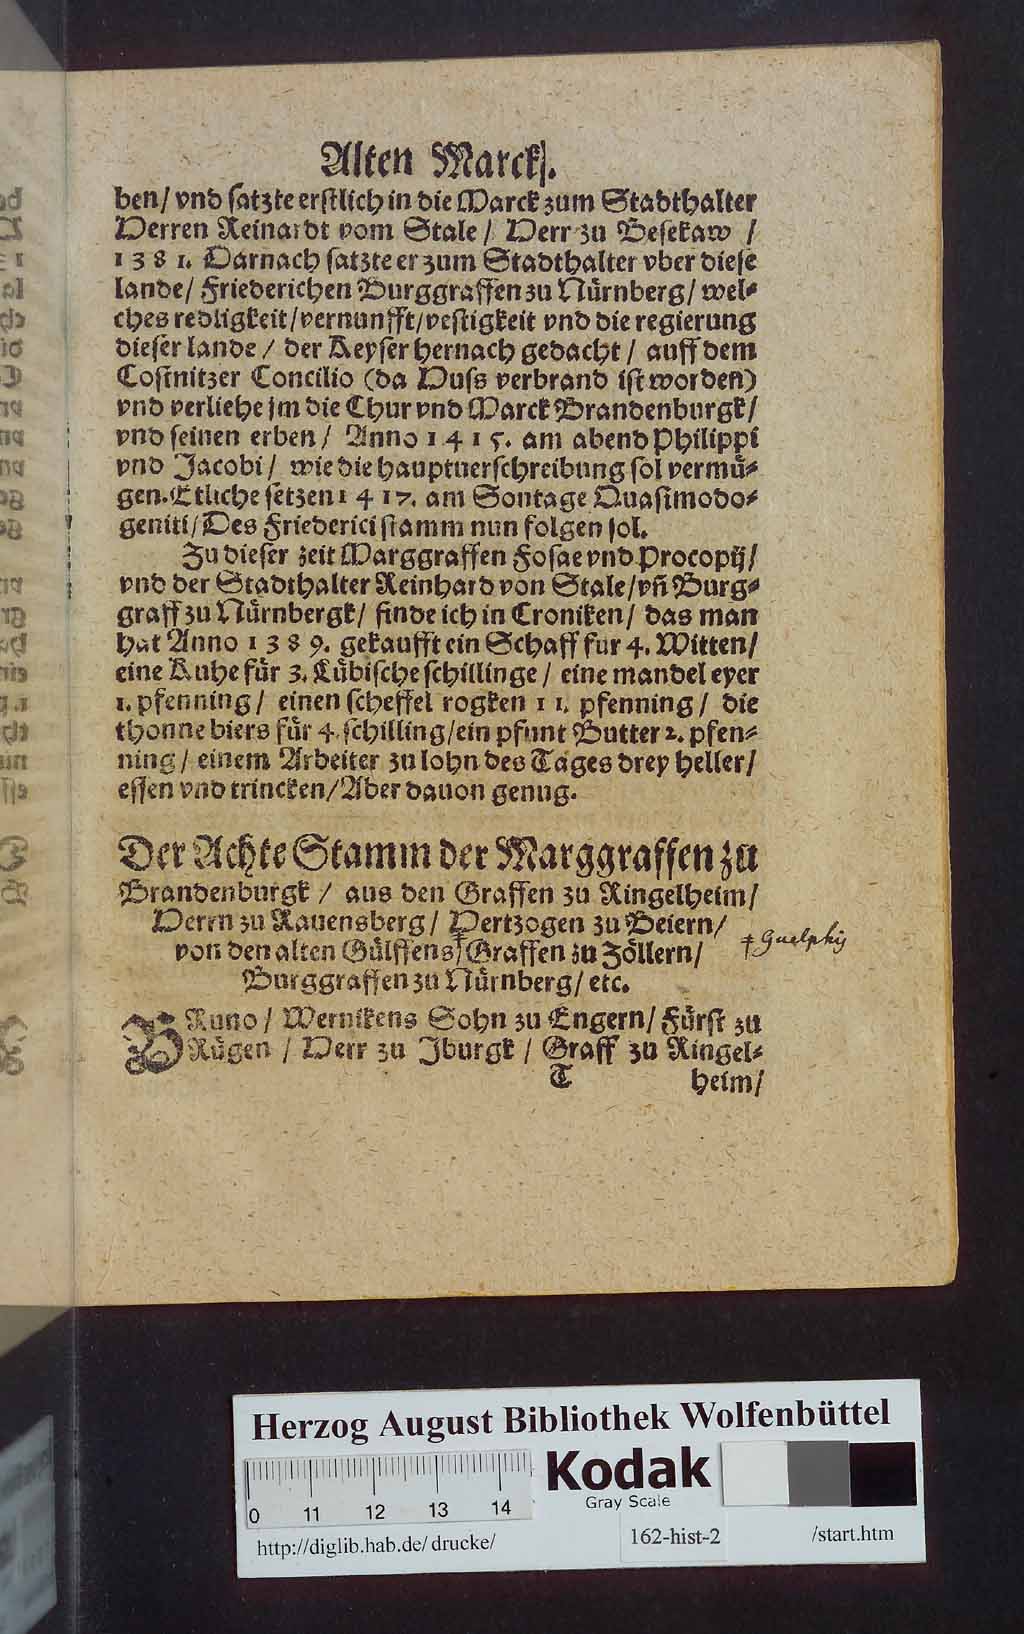 Alten Marck.
ben/ vnd satzte erstlich in die Marck zum Stadthalter
Herren Reinardt vom Stale/ Herr zu Besekaw /
1381. Darnach satzte er zum Stadthalter vber diese
lande/ Friederichen Burggraffen zu Nürnberg/ wel⸗
ches redligkeit/vernunfft/vestigkeit vnd die regierung
dieser lande/ der Keyser hernach gedacht/ auff dem
Costnitzer Concilio (da Huss verbrand ist worden)
vnd verliehe jm die Chur vnd Marck Brandenburgk/
vnd seinen erben/ Anno 1415. am abend Philippi
vnd Jacobi/ wie die hauptuerschreibung sol vermü⸗
gen. Etliche setzen 1417. am Sontage Quasimodo⸗
geniti/ Des Friederici stamm nun folgen sol.
Zu dieser zeit Marggraffen Fosae vnd Procopij/
vnd der Stadthalter Reinhard von Stale/ vñ Burg⸗
graff zu Nürnbergk/ finde ich in Croniken/ das man
hat Anno 1389. gekaufft ein Schaff fur 4. Witten/
eine Kuhe für 3. Lübische schillinge/ eine mandel eyer
1. pfenning/ einen scheffel rogken 11. pfenning/ die
thonne biers für 4. schilling/ein pfunt Butter 2. pfen⸗
ning/ einem Arbeiter zu lohn des Tages drey heller/
essen vnd trincken/ Aber dauon genug.
Der Achte Stamm der Marggraffen zu
Brandenburgk/ aus den Graffen zu Ringelheim/
Herrn zu Rauensberg/ Hertzogen zu Beiern/
von den alten Gülffens/ Graffen zu Zöllern/
‡ Guelphis
Burggraffen zu Nürnberg/ etc.
BRuno/ Wernikens Sohn zu Engern/ Fürst zu
Rügen / Herr zu Jburgk / Graff zu Ringel⸗
T heim/
Herzog August Bibliothek Wolfenbüttel
Kodak
Gray Scale
0 11 12 13 14
http://diglib.hab.de/drucke/ 162-hist-2 /start.htm